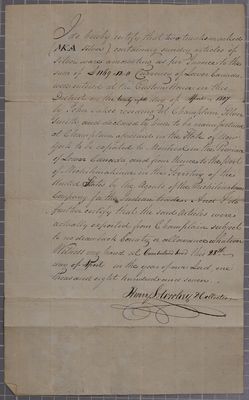 I do hereby certify that two trunks marked
(NKA Silver) containing sundry articles of
Silver ware, amounting as per Invoice to the
sum of £1169.12.0 Currency of Lower Canada
were entered at the Custom House in this
District on the day of April 1807
by John resident at Champlain Silver
Smith and declared by him to be manufactured
at Champlain aforesaid in the State of New
York to be exported to Montreal in the Province
of Lower Canada and from thence to the port
of Michilimackinac in the Territory of the
United States by the Agents of the Michilimackinac
Company for the Indian trade. And I do
further certify that the said Articles were
actually exported from Champlain subject
to no drawback bounty or allowance whatever
Witness my hand at Cumberland Head this 28th
day of April in the year of our Lord, one
thousand eight hundred and seven.
Henry Collector